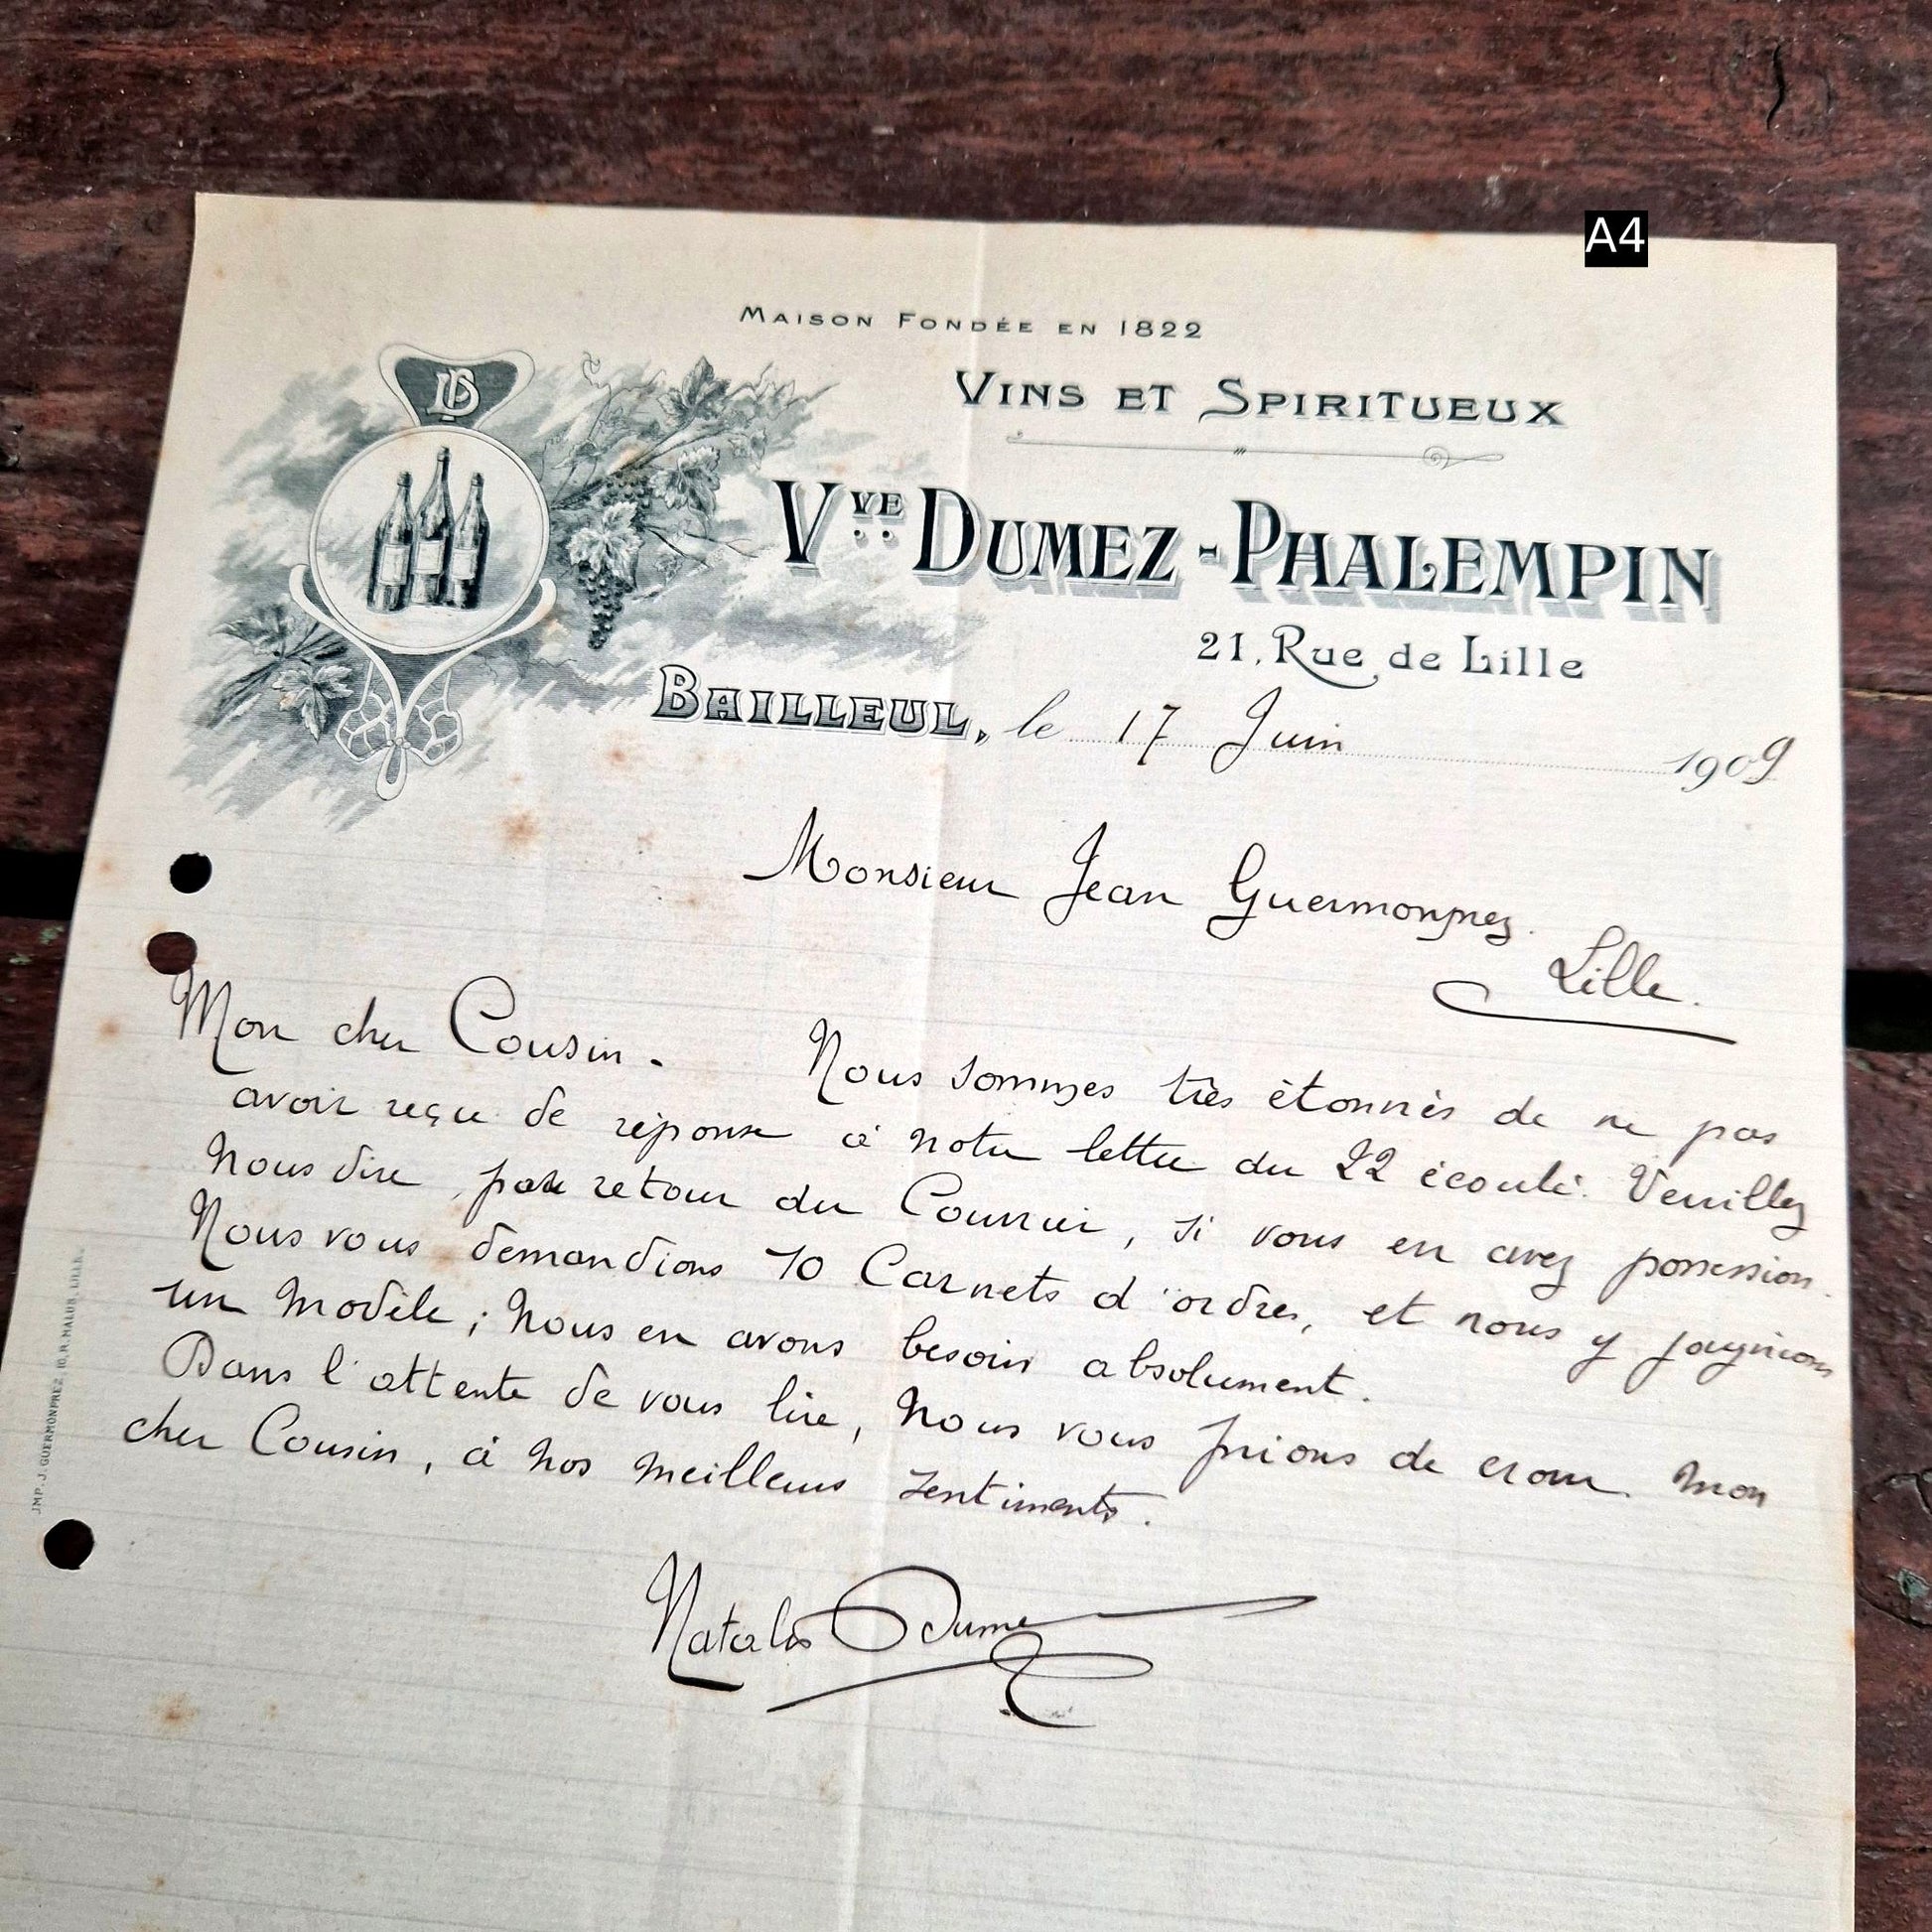 A4
MAISON FONDÉE EN 1822
VINS ET SPIRITUEUX
Vve DUMEZ-PHALEMPIN
21, Rue de Lille
BAILLEUL, le 17 Juin 1909
Monsieur Jean Guermonprez.
Lille.
Mon cher Cousin - Nous sommes très étonnés de ne pas
avoir reçu de réponse à notre lettre du 22 écoulé. Veuillez
nous dire par retour du Courrier, si vous en avez possession.
Nous vous demandions 10 Carnets d'ordres, et nous y joignions
un modèle ; nous en avons besoin absolument.
Dans l'attente de vous lire, nous vous prions de croire mon
cher Cousin, à nos meilleurs sentiments.
Natalis Dumez
IMP. J. GUERMONPREZ, 10, R. MALUS, LILLE.
DP